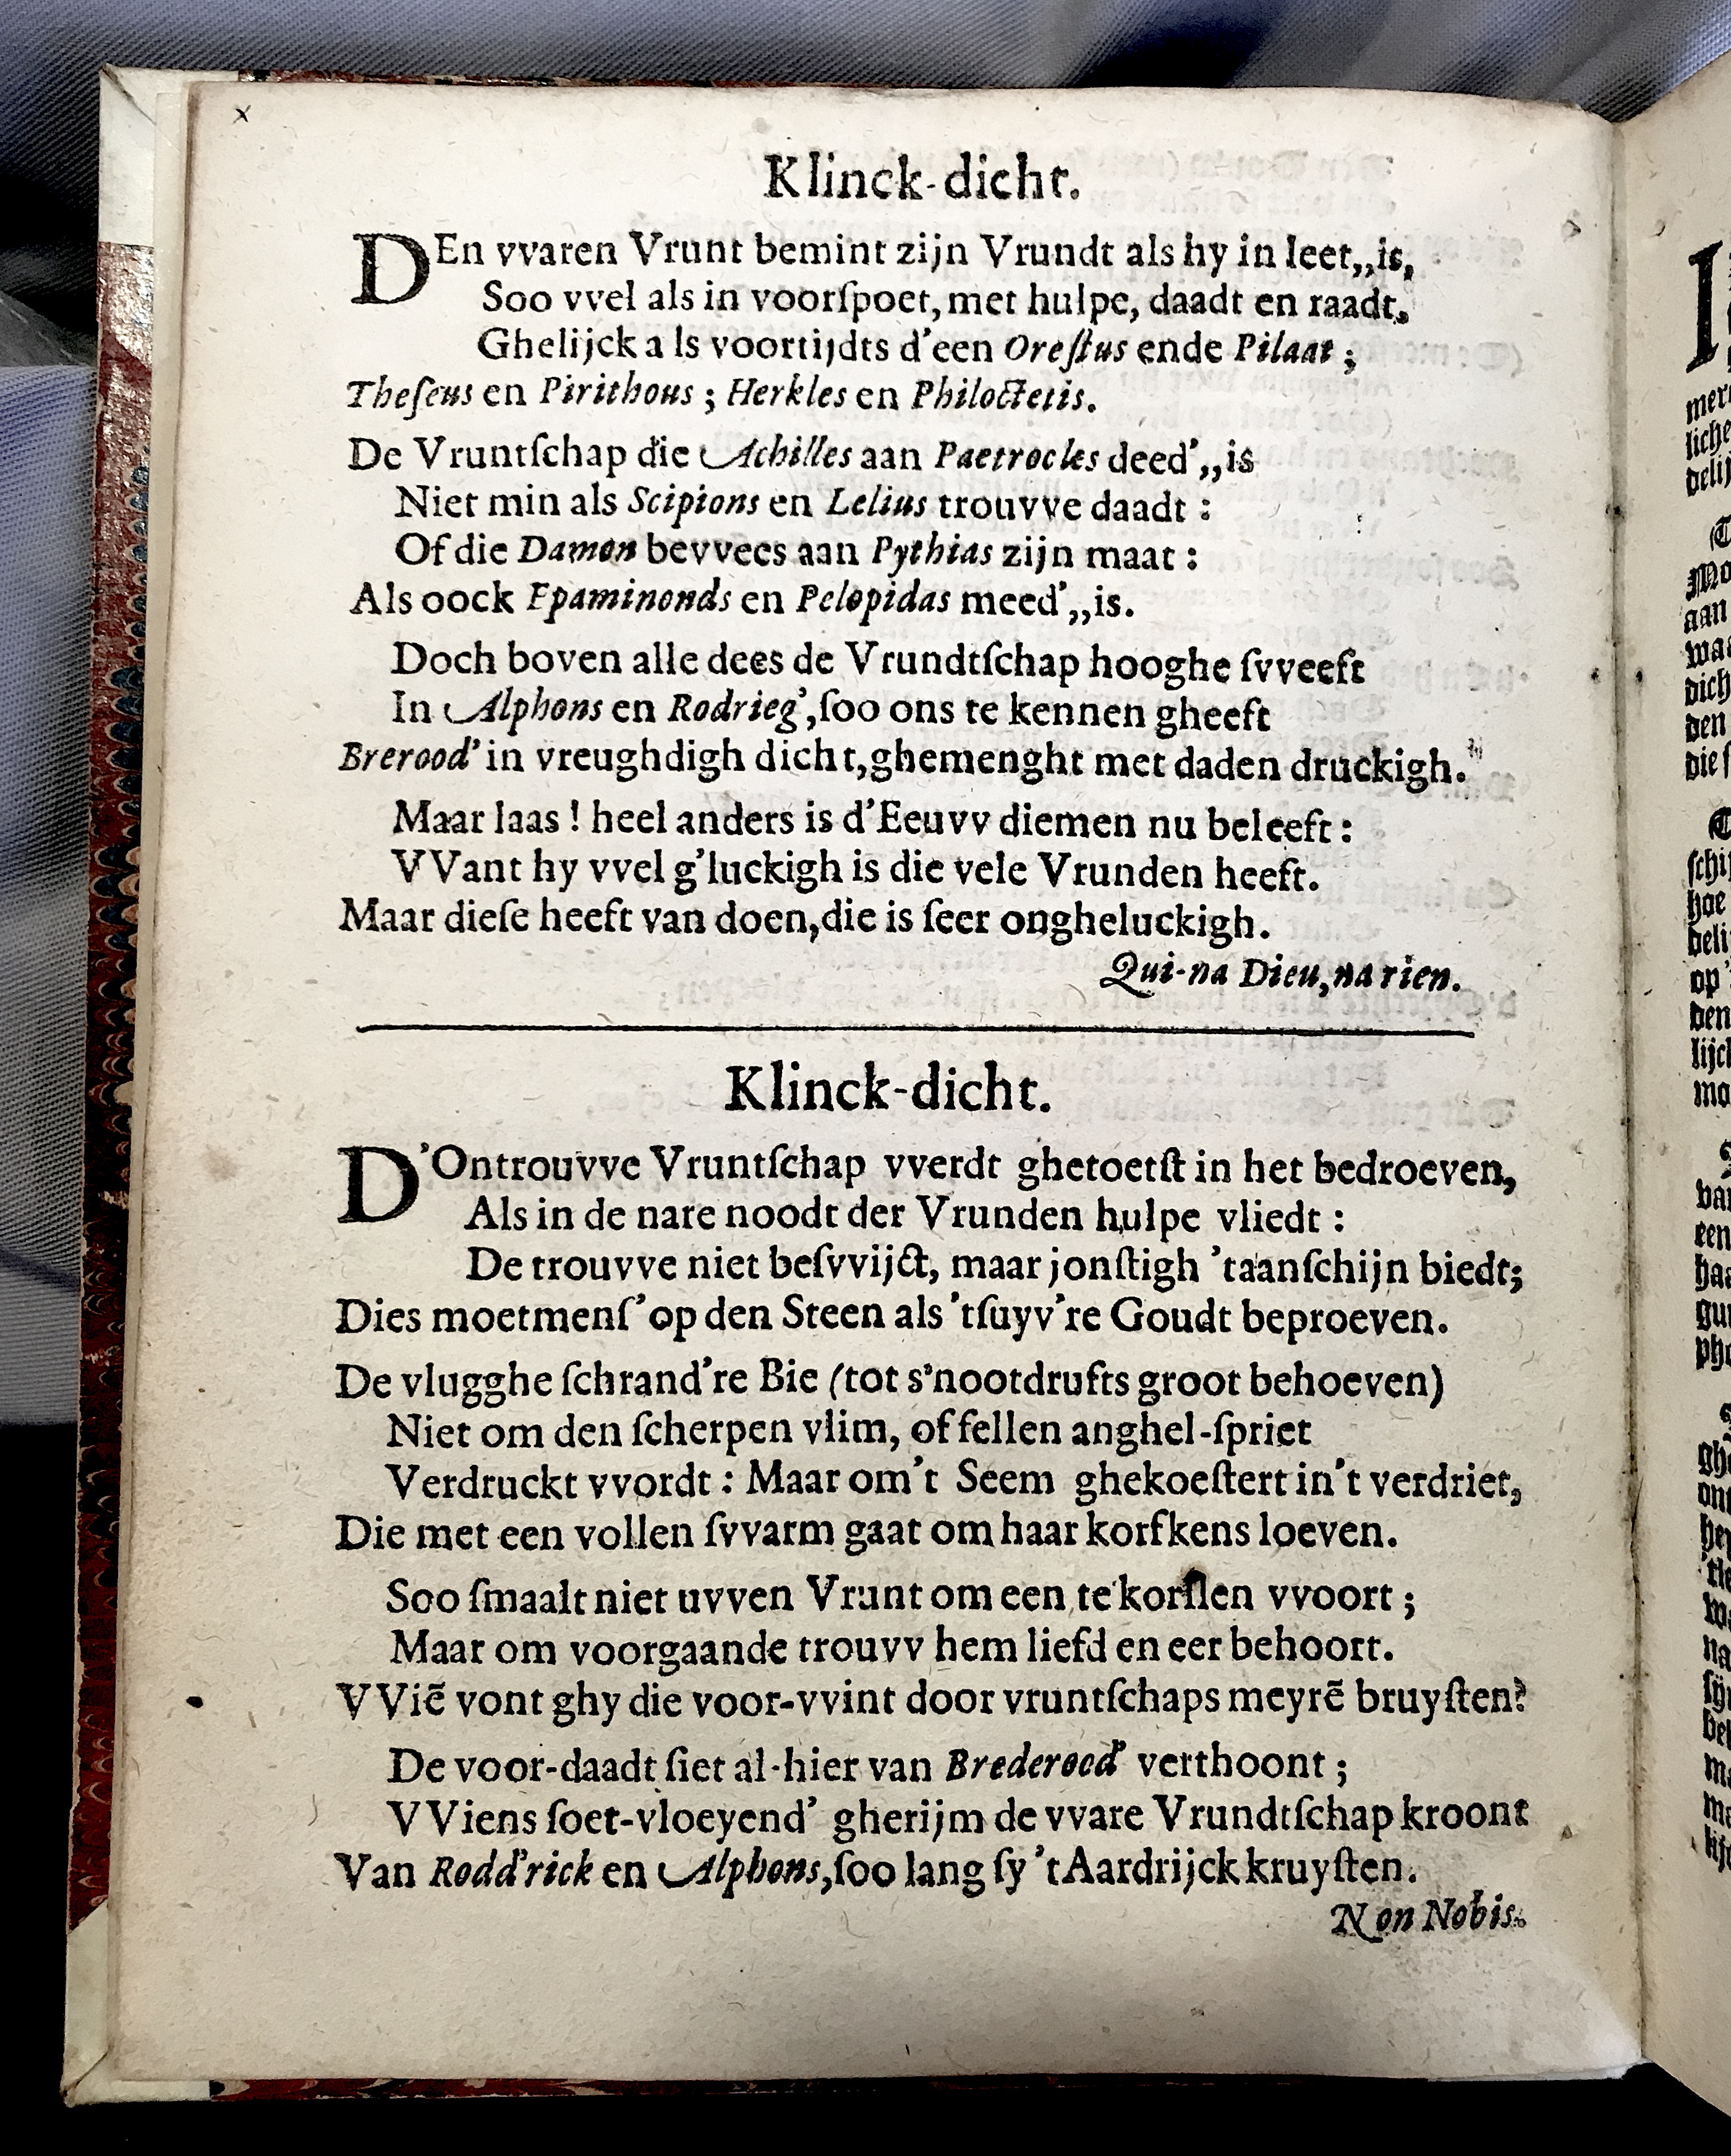 x
Klinck-dicht.
DEn vvaren Vrunt bemint zijn Vrundt als hy in leet,,is,
Soo vvel als in voorſpoet, met hulpe, daadt en raadt.
Ghelijck a ls voortijdts d'een Oreſtus ende Pilaat ;
Theſeus en Pirithous ; Herkles en Philoctetis.
De Vruntſchap die Achilles aan Paetrocles deed',,is
Niet min als Scipions en Lelius trouvve daadt :
Of die Damon bevvees aan Pythias zijn maat :
Als oock Epaminonds en Pelopidas meed',,is.
Doch boven alle dees de Vrundtſchap hooghe ſvveeft
In Alphons en Rodrieg', ſoo ons te kennen gheeft
Brerood' in vreughdigh dicht, ghemenght met daden druckigh.
Maar laas ! heel anders is d'Eeuvv diemen nu beleeft :
VVant hy vvel g'luckigh is die vele Vrunden heeft.
Maar dieſe heeft van doen, die is ſeer ongheluckigh.
Qui-na Dieu, na rien.
Klinck-dicht.
D'Ontrouvve Vruntſchap vverdt ghetoetſt in het bedroeven,
Als in de nare noodt der Vrunden hulpe vliedt :
De trouvve niet beſvvijct, maar jonſtigh 'taanſchijn biedt;
Dies moetmenſ'op den Steen als 'tſuyv're Goudt beproeven.
De vlugghe ſchrand're Bie (tot s'nootdrufts groot behoeven)
Niet om den ſcherpen vlim, of fellen anghel-ſpriet
Verdruckt vvordt : Maar om't Seem ghekoeſtert in't verdriet,
Die met een vollen ſvvarm gaat om haar korfkens loeven.
Soo ſmaalt niet uvven Vrunt om een te korſlen vvoort ;
Maar om voorgaande trouvv hem liefd en eer behoort.
VViẽ vont ghy die voor-vvint door vruntſchaps meyrẽ bruyſten?
De voor-daadt ſiet al-hier van Brederood' verthoont ;
VViens ſoet-vloeyend' gherijm de vvare Vrundtſchap kroont
Van Rodd'rick en Alphons, ſoo lang ſy 't Aardrijck kruyſten.
Non Nobis.